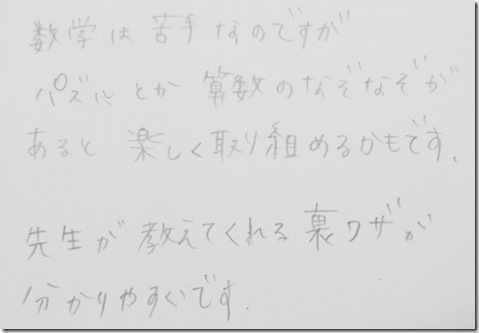 数学は苦手なのですが
パズルとか 算数のなぞなぞが
あると 楽しく取り組めるかもです.
先生が教えてくれる裏ワザが
分かりやすいです.